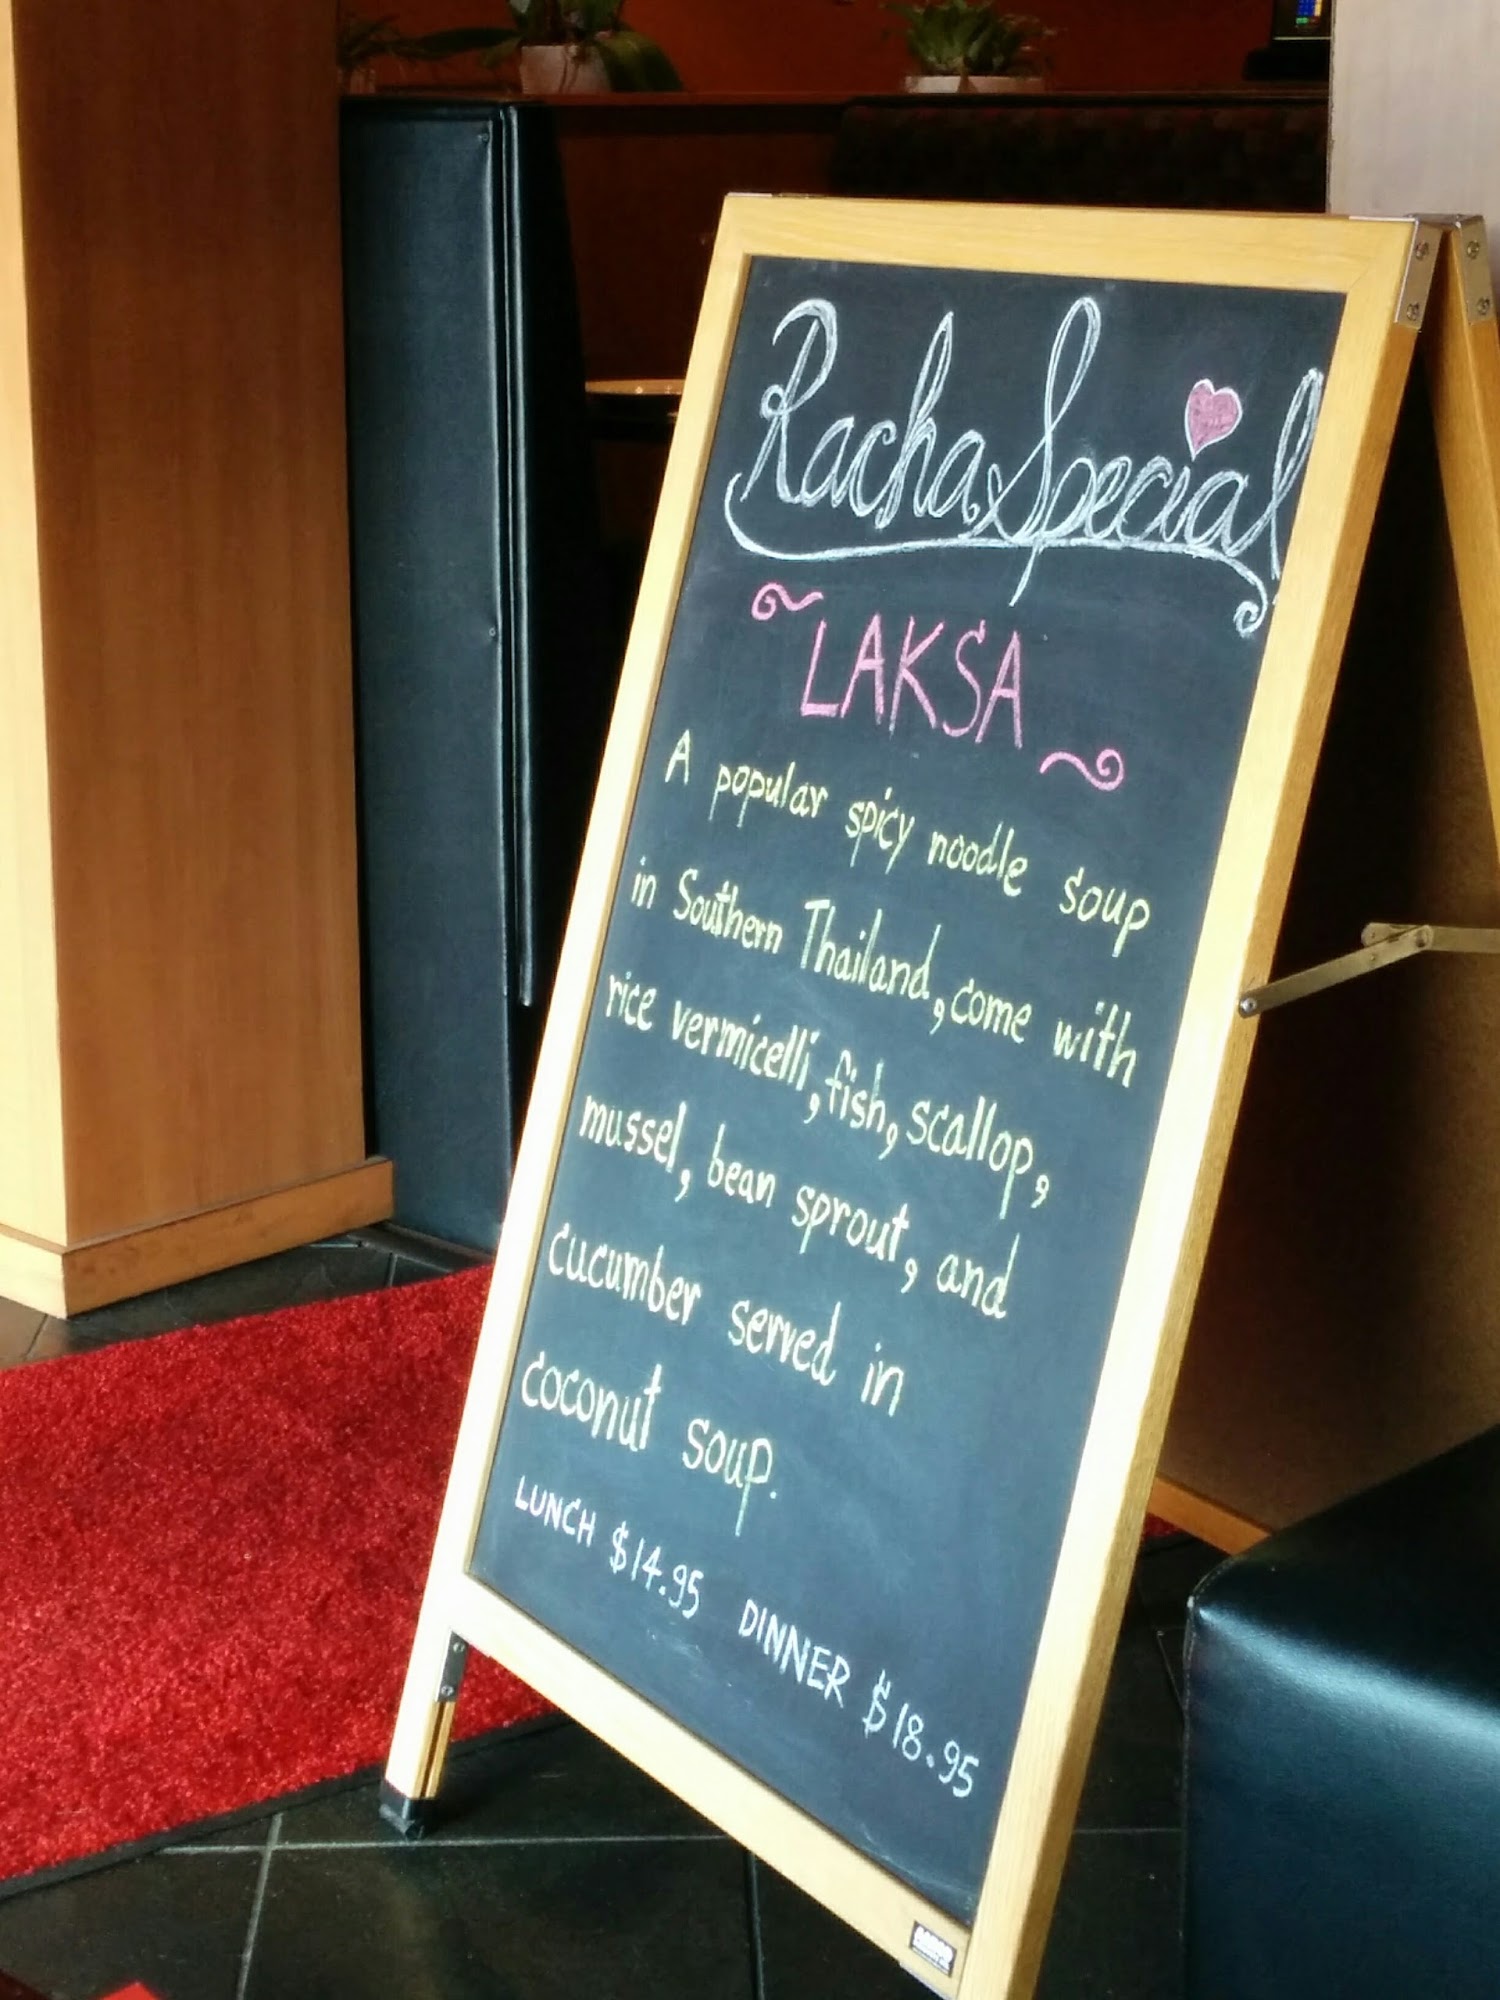 Racha Special
LAKSA
A popular spicy noodle soup
in Southern Thailand, come with
rice vermicelli, fish, scallop,
mussel, bean sprout, and
cucumber served in
coconut soup.
LUNCH $14.95 DINNER $18.95